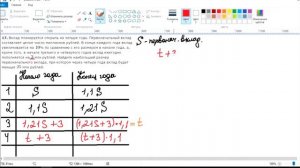 43. Вклад планируется открыть на четыре года. Первоначальный вклад
составляет целое число миллионов рублей. В конце каждого года вклад
увеличивается на 10% по сравнению с его размером в начале года, а,
кроме этого, в начале третьего и четвёртого годов вклад ежегодно
пополняется на 3 млн рублей. Найдите наибольший размер
первоначального вклада, при котором через четыре года вклад будет
меньше 25 млн рублей.
S - первонач. вклад.
t + 3
Начало года Конец года
1 S 1,1S
2 1,1S 1,21S
3 1,21S + 3 (1,21S+3)·1,1 = t
4 t + 3 (t+3)·1,1